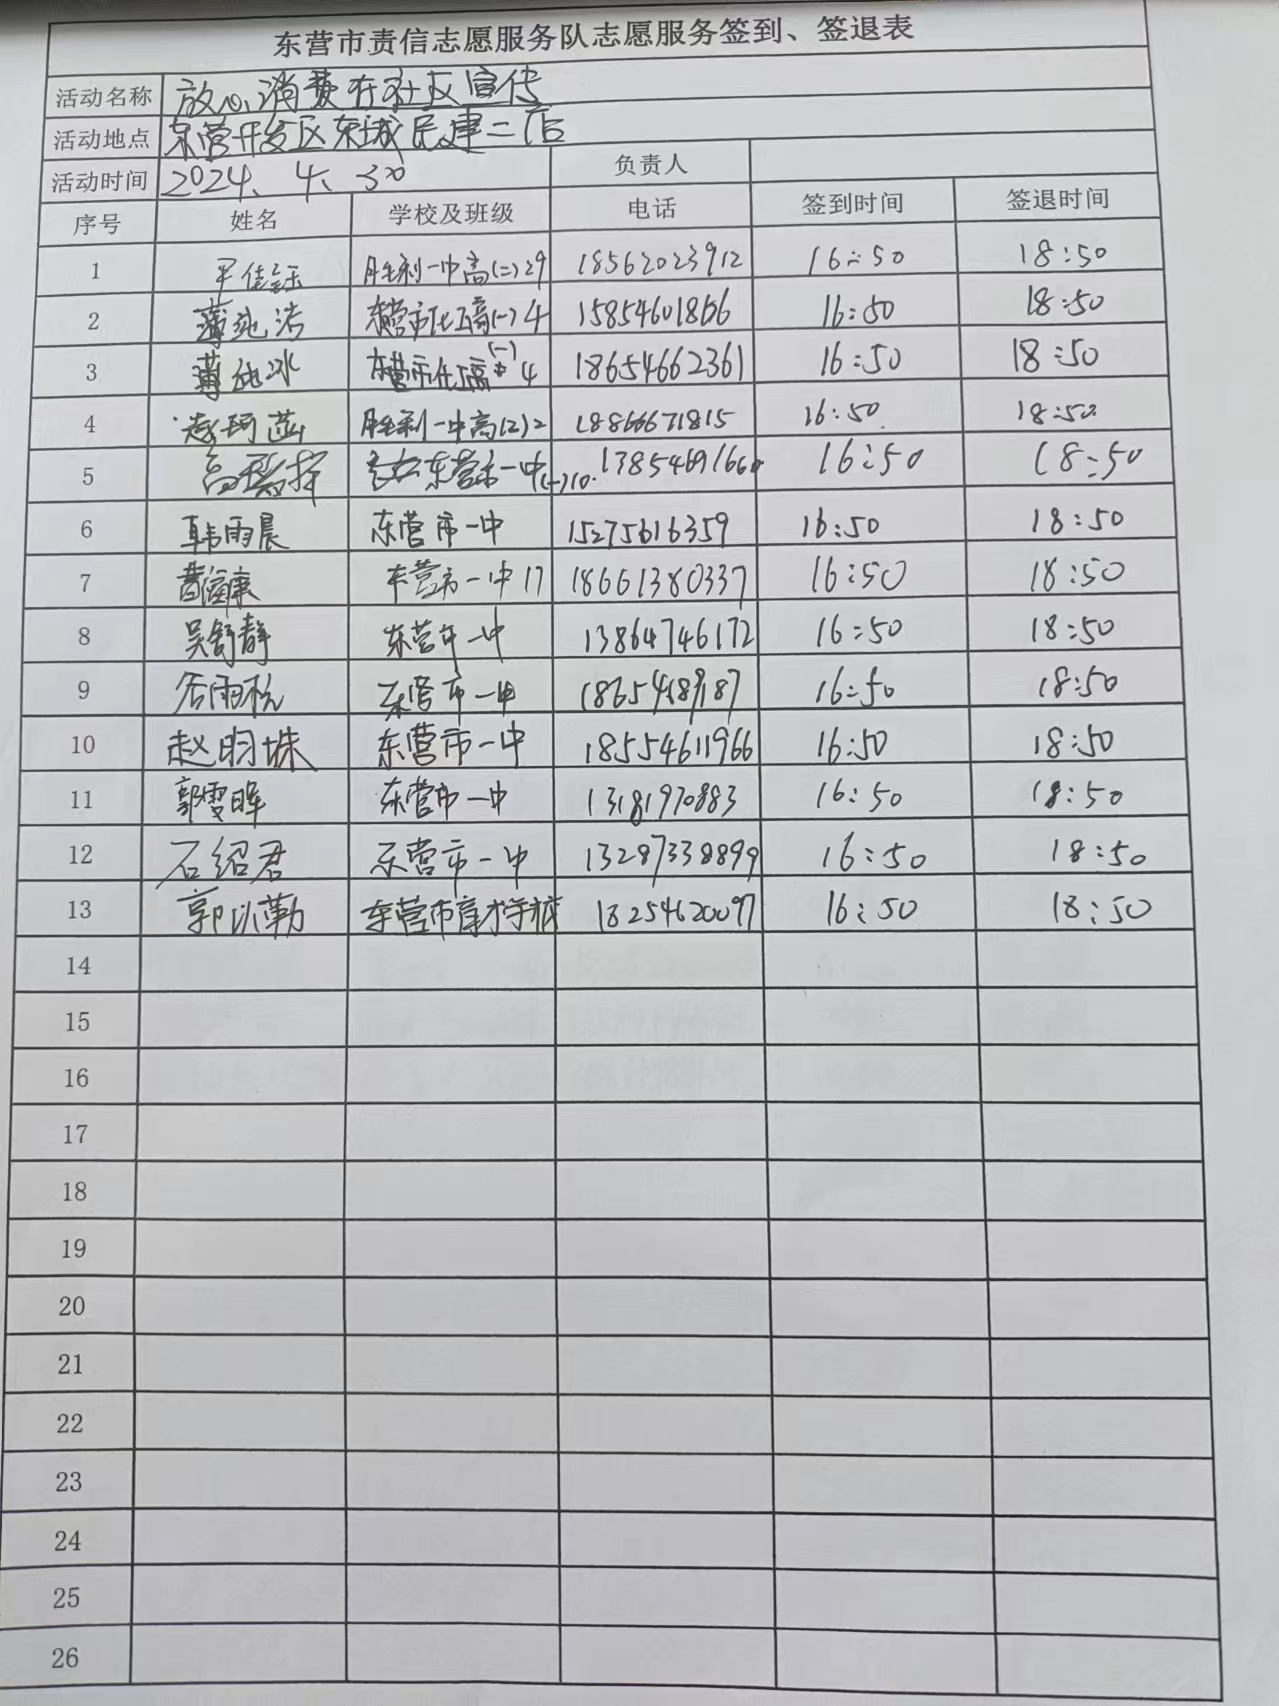 东营市责信志愿服务队志愿服务签到、签退表
活动名称 放心消费在社区宣传
活动地点 东营开发区东城民建二店
活动时间 2024、4、30 负责人
序号 姓名 学校及班级 电话 签到时间 签退时间
1 佳钰 胜利一中高(二)29 18562023912 16:50 18:50
2 薄纯洁 东营市化工高(一)4 15854601866 16:50 18:50
3 薄纯冰 东营市化工高(一)4 18654662361 16:50 18:50
4 珂菡 胜利一中高(2)2 18866671815 16:50 18:50
5 高 东营市一中(一)10. 16:50 18:50
6 韩雨晨 东营市一中 15275616359 16:50 18:50
7 东营市一中17 18661380337 16:50 18:50
8 吴舒静 东营市一中 13864746172 16:50 18:50
9 谷雨杭 东营市一中 18654189187 16:50 18:50
10 赵昀姝 东营市一中 18554611966 16:50 18:50
11 郭雯晖 东营市一中 13181970883 16:50 18:50
12 石绍君 东营市一中 13287338899 16:50 18:50
13 郭以勒 东营市育才学校 18254620097 16:50 18:50
14
15
16
17
18
19
20
21
22
23
24
25
26